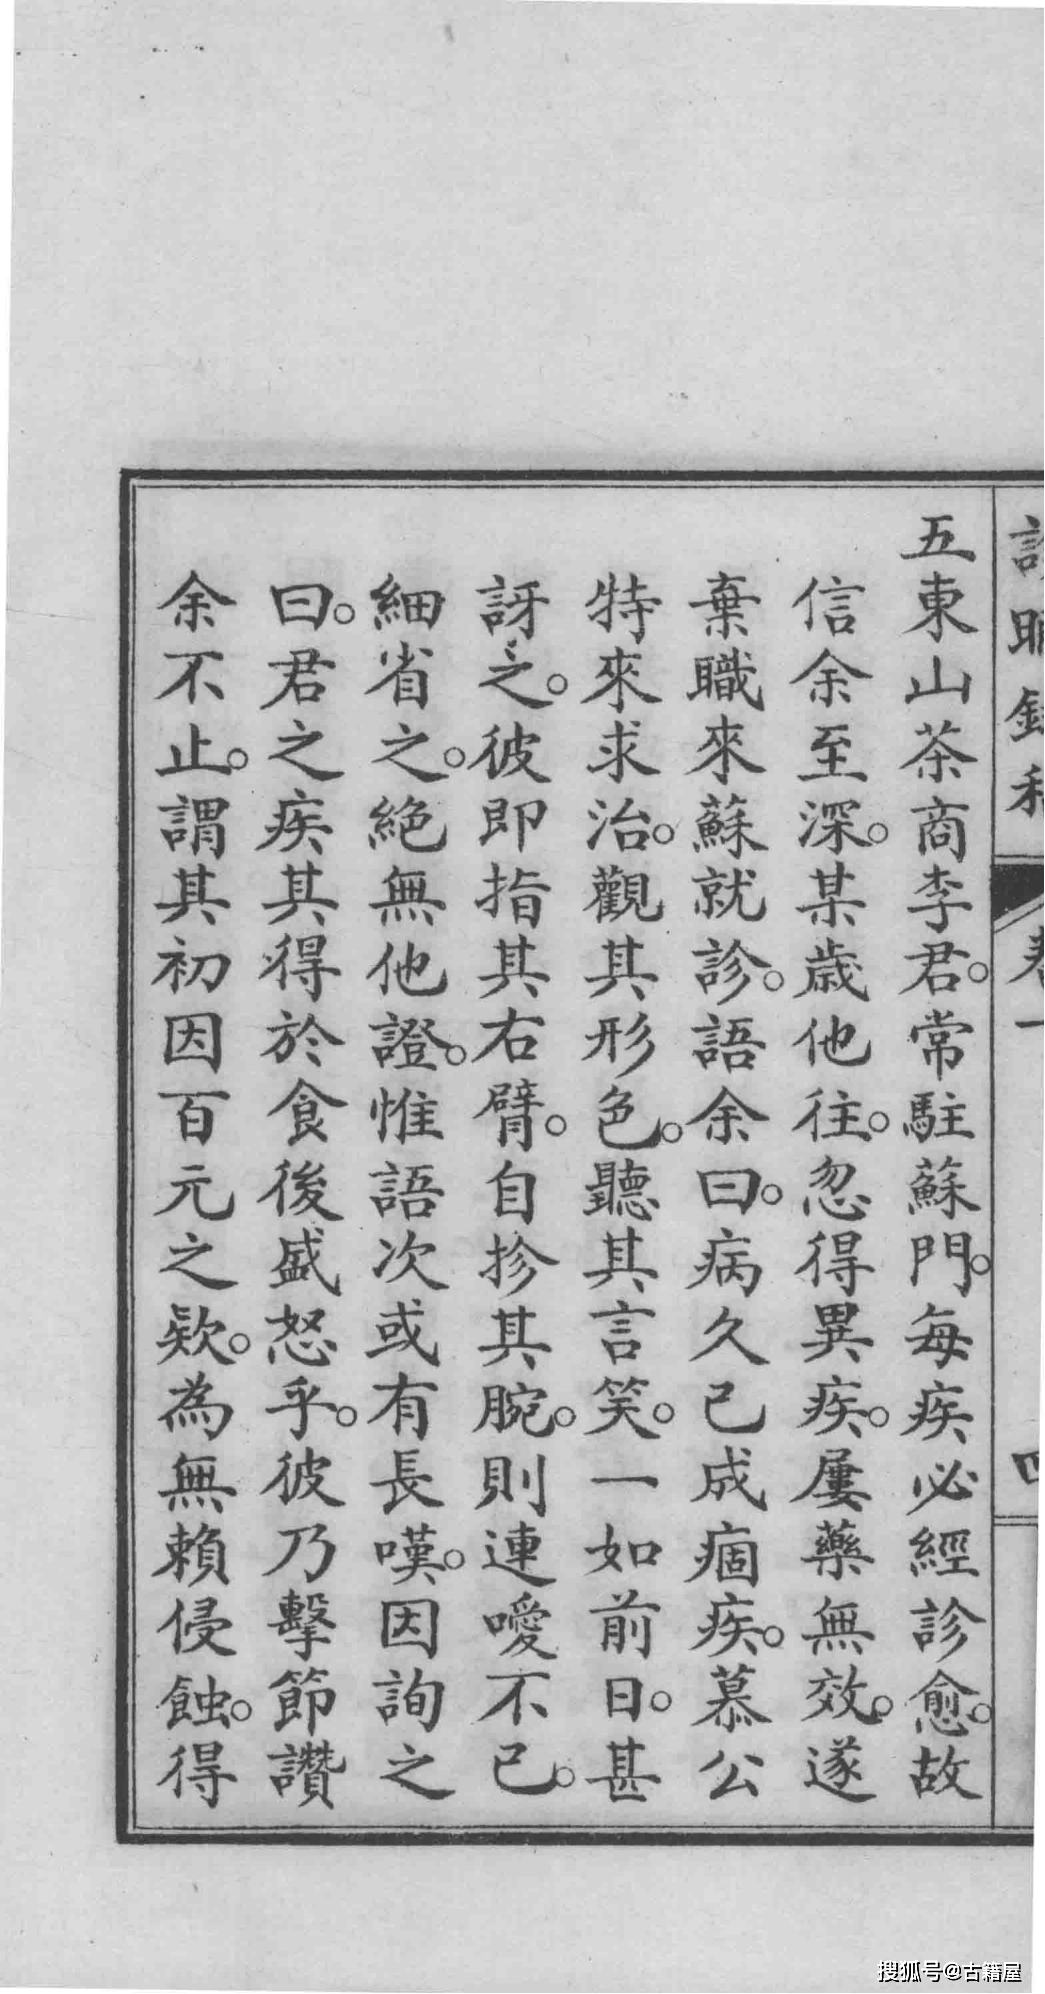 五東山茶商李君。常駐蘇門。每疾必經診愈。故
信余至深。某歲他往。忽得異疾。屢藥無效。遂
棄職來蘇就診。語余曰。病久已成痼疾。慕公
特來求治。觀其形色。聽其言笑。一如前日。甚
訝之。彼即指其右臂。自抮其腕。則連噯不已。
細省之。絕無他證。惟語次或有長嘆。因詢之
曰。君之疾其得於食後盛怒乎。彼乃擊節讚
余不止。謂其初因百元之欵。為無賴侵蝕。得
搜狐号@古籍屋